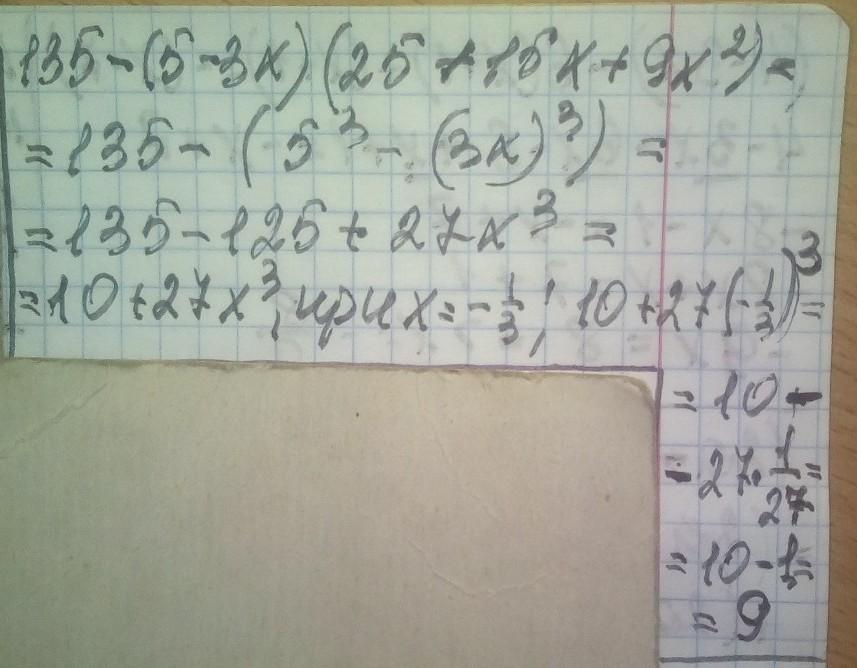 135-(5-3x)(25+15x+9x²)=
=135-(5³-(3x)³)=
=135-125+27x³=
=10+27x³, при x=-1/3; 10+27(-1/3)³=
=10-
-27·1/27=
=10-1=
=9